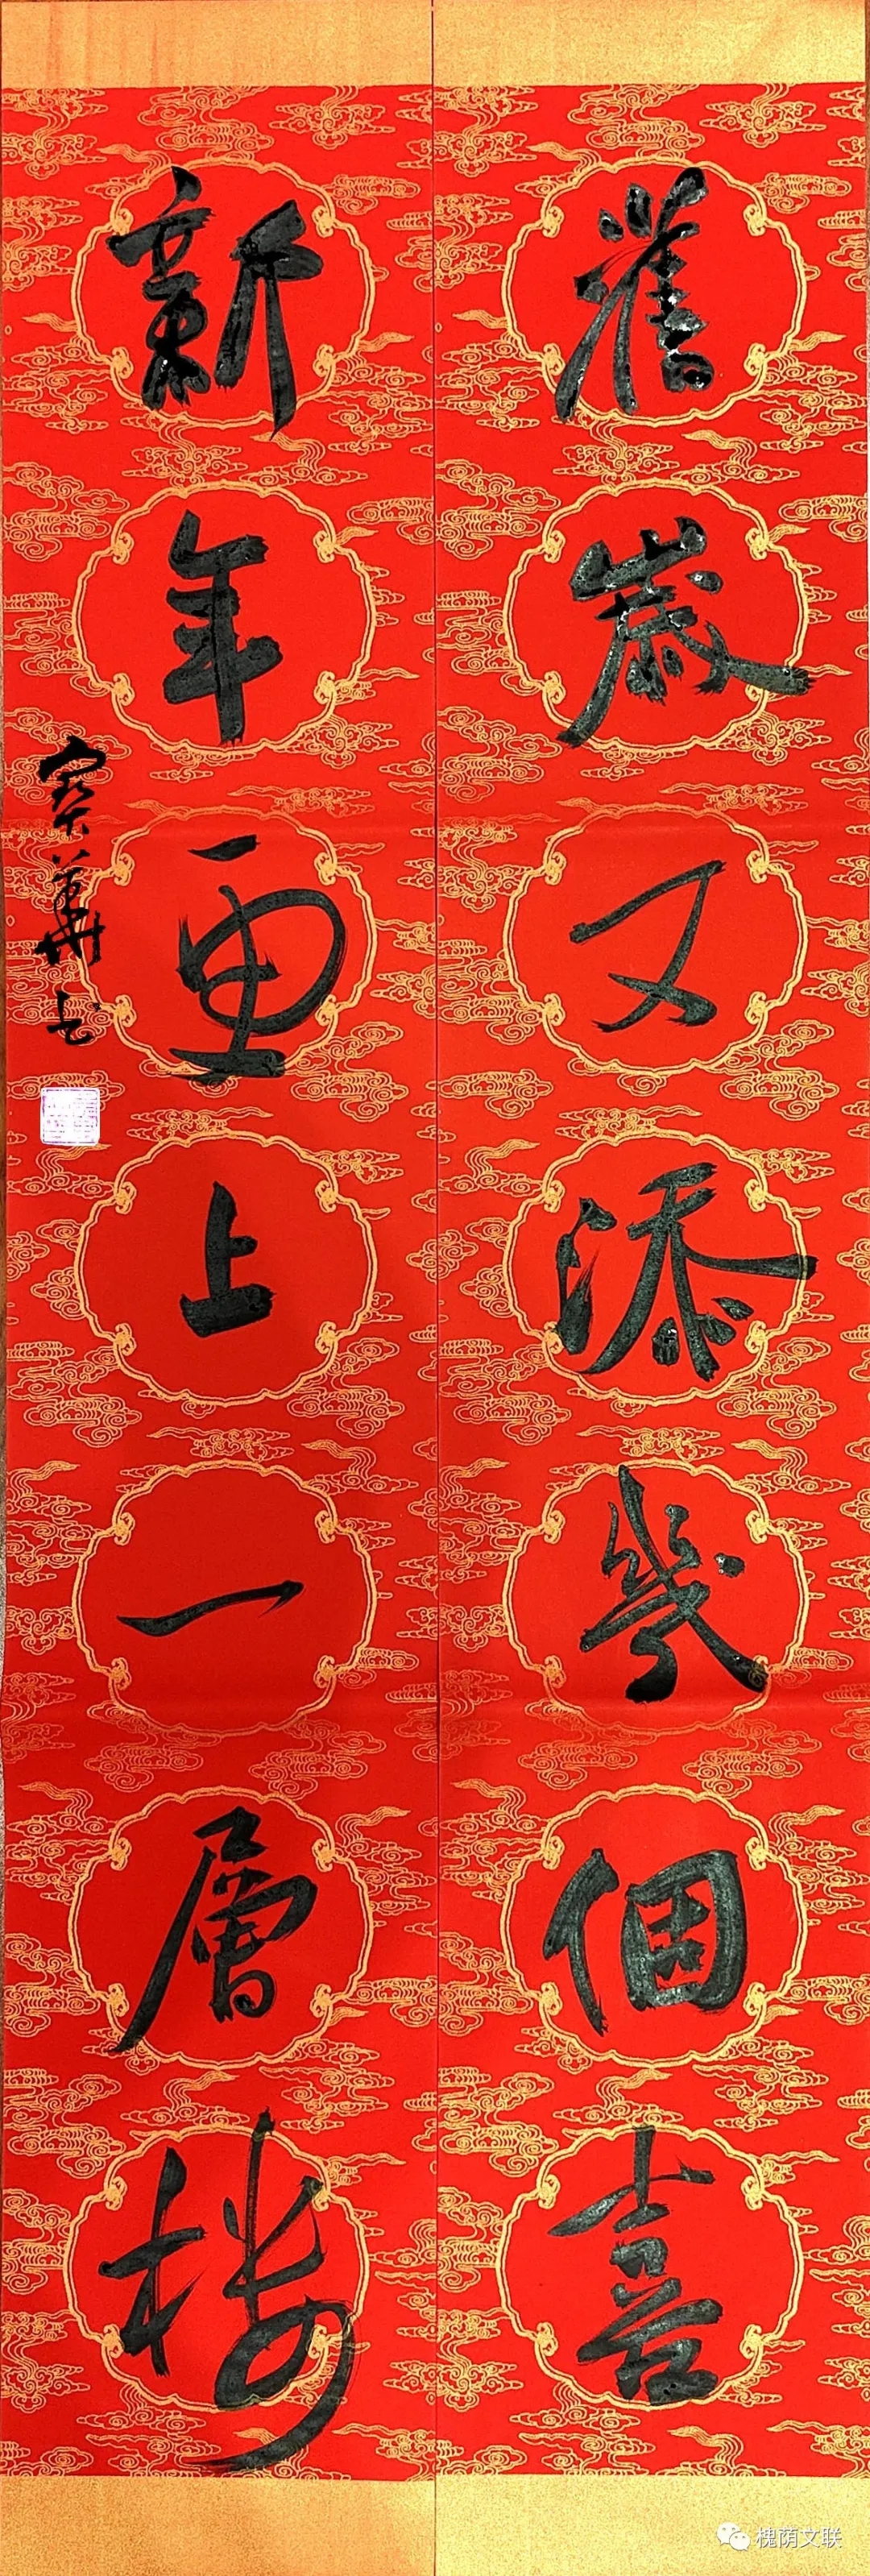 舊歲又添幾個喜
新年更上一層樓
寶華書
槐荫文联